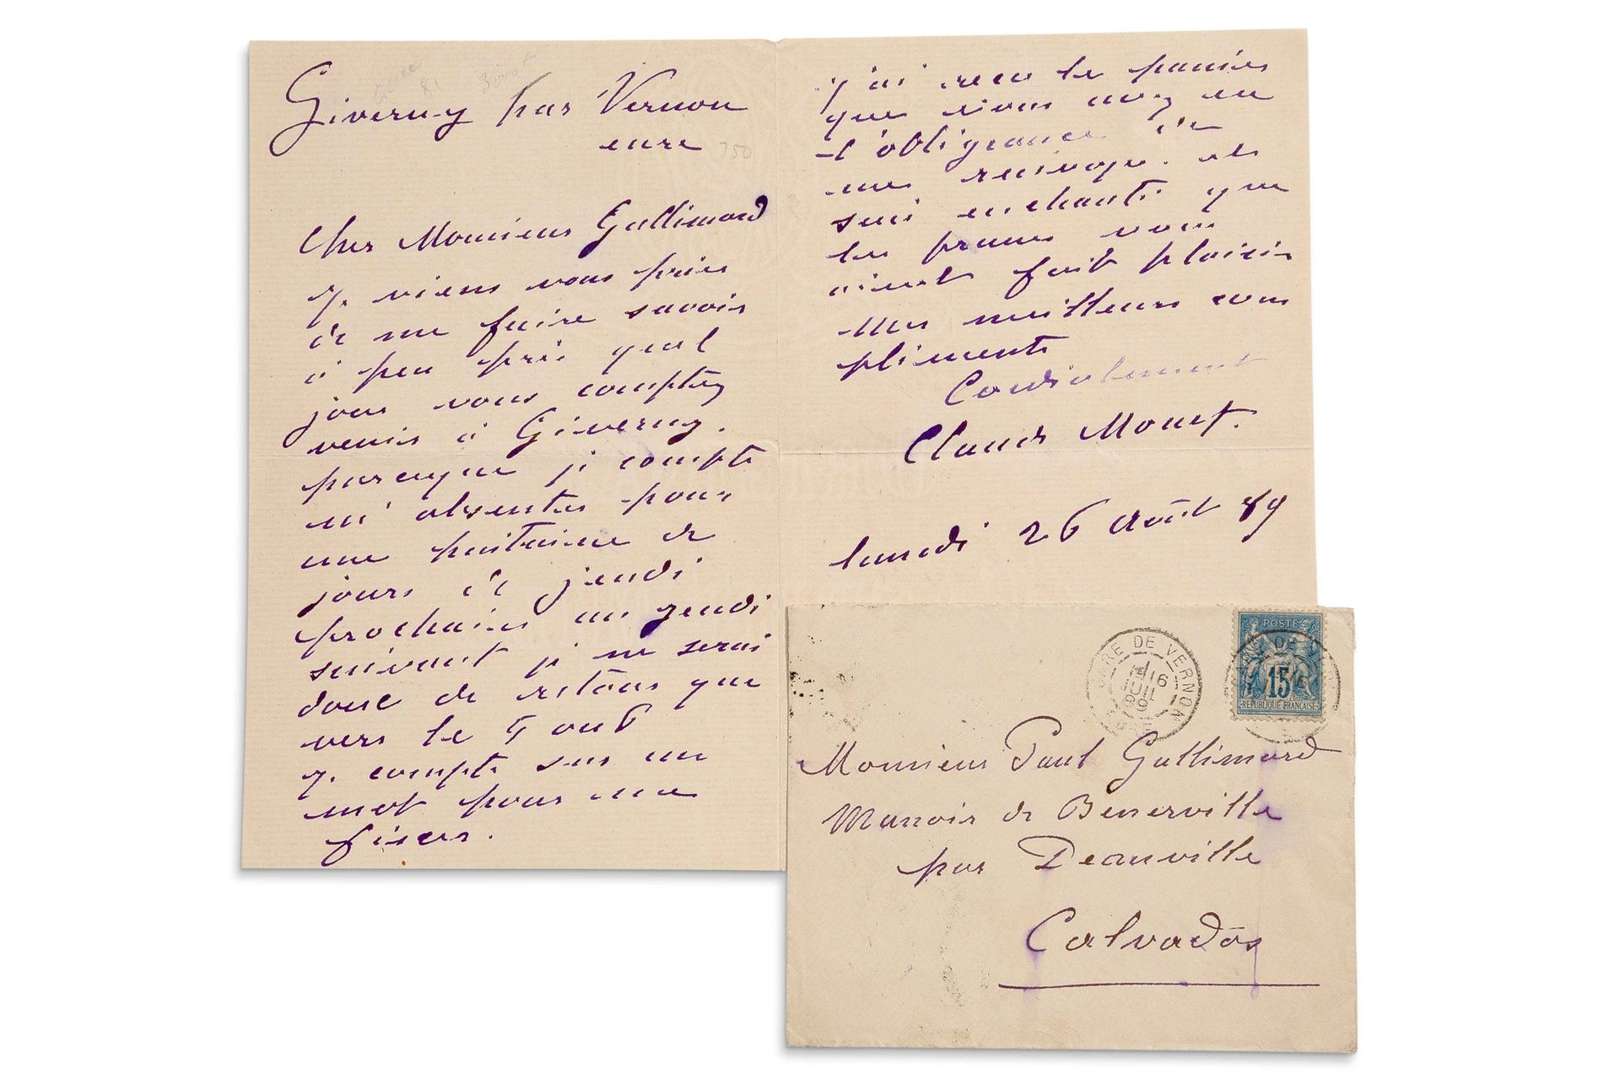 Giverny par Vernon
eure
Cher Monsieur Gallimard
je viens vous prier
de me faire savoir
à peu près quel
jour vous comptez
venir à Giverny.
parceque je compte
m'absenter pour
une huitaine de
jours de jeudi
prochain au jeudi
suivant je ne serai
donc de retour que
vers le 5 ou 6
je compte sur un
mot pour me
fixer.
j'ai reçu le panier
que vous avez eu
l'obligeance de
me renvoyer. et
suis enchanté que
les prunes vous
aient fait plaisir
Mes meilleurs com
pliments
Cordialement
Claude Monet.
lundi 26 Août 89
GARE DE VERNON
POSTE
15
REPUBLIQUE FRANÇAISE
Monsieur Paul Gallimard
Manoir de Benerville
par Deauville
Calvados